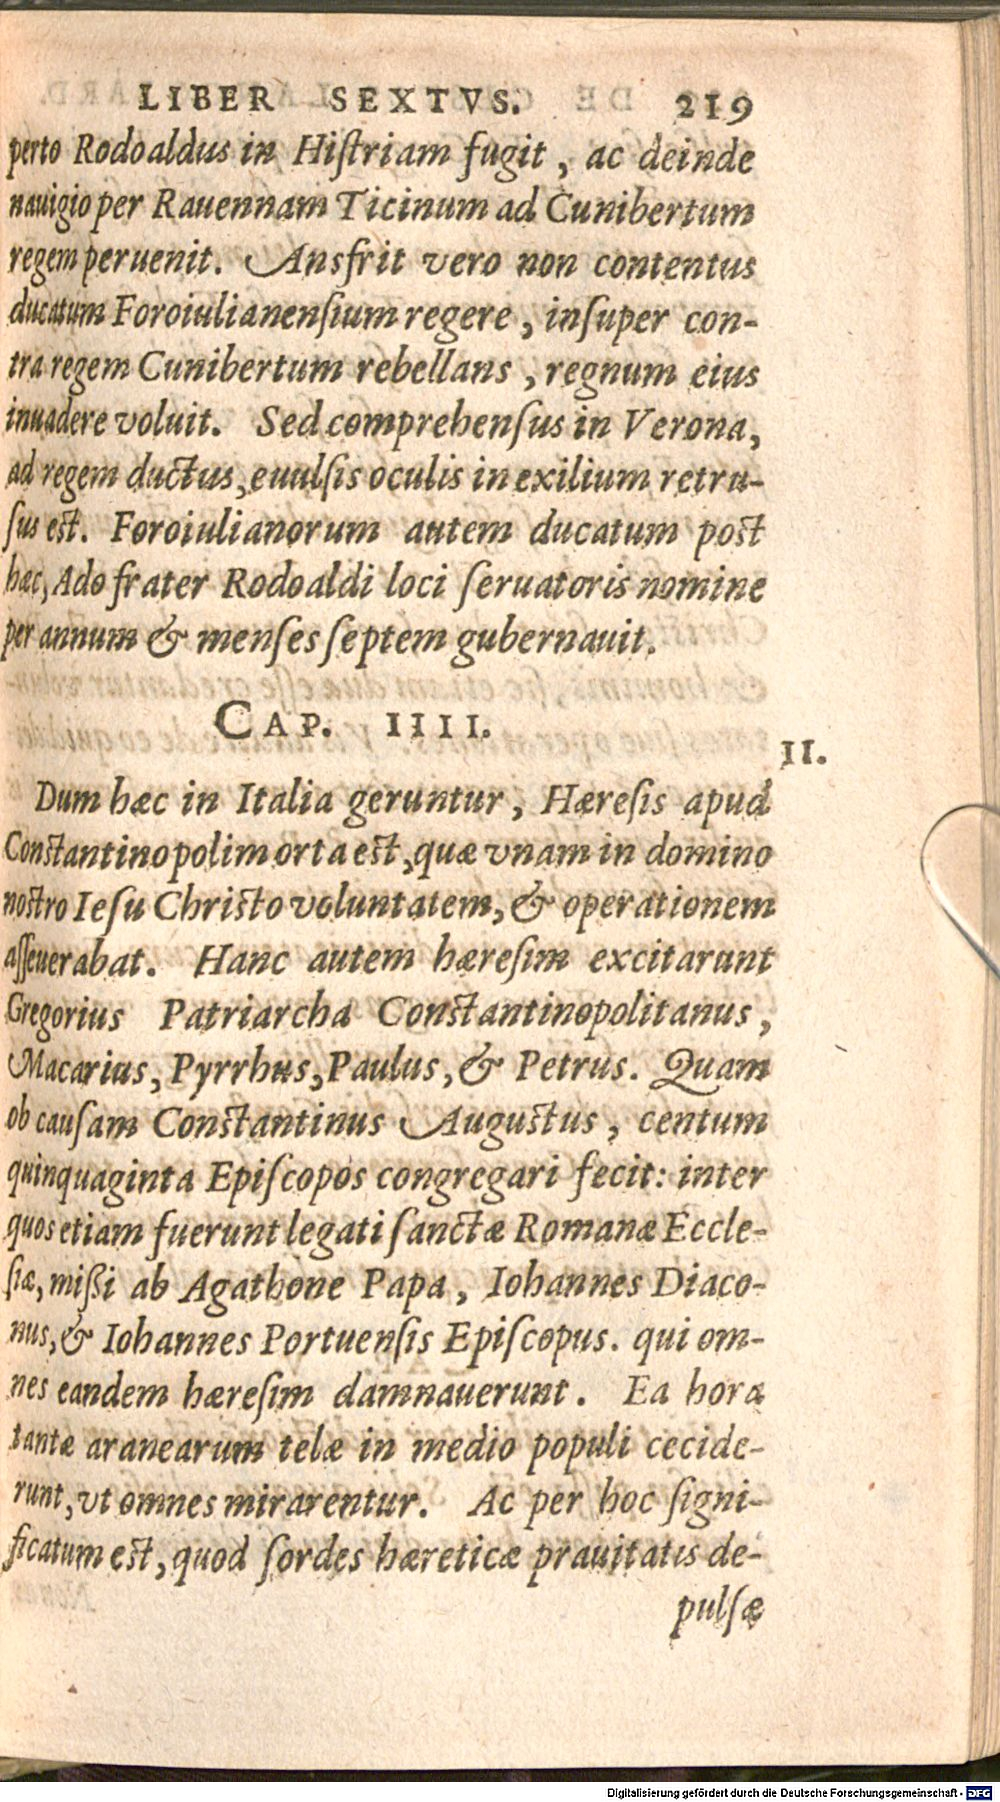 LIBER SEXTVS. 219
perto Rodoaldus in Hiſtriam fugit, ac deinde
nauigio per Rauennam Ticinum ad Cunibertum
regem peruenit. Ansfrit vero non contentus
ducatum Foroiulianenſium regere, inſuper con-
tra regem Cunibertum rebellans, regnum eius
inuadere voluit. Sed comprehenſus in Verona,
ad regem ductus, euulſis oculis in exilium retru-
ſus eſt. Foroiulianorum autem ducatum poſt
hæc, Ado frater Rodoaldi loci ſeruatoris nomine
per annum & menſes ſeptem gubernauit.
CAP. IIII.
II.
Dum hæc in Italia geruntur, Hæreſis apud
Conſtantinopolim orta eſt, quæ vnam in domino
noſtro Ieſu Chriſto voluntatem, & operationem
aſſeuerabat. Hanc autem hæreſim excitarunt
Gregorius Patriarcha Conſtantinopolitanus,
Macarius, Pyrrhus, Paulus, & Petrus. Quam
ob cauſam Conſtantinus Auguſtus, centum
quinquaginta Epiſcopos congregari fecit: inter
quos etiam fuerunt legati ſanctæ Romanæ Eccle-
ſiæ, mißi ab Agathone Papa, Iohannes Diaco-
nus, & Iohannes Portuenſis Epiſcopus. qui om-
nes eandem hæreſim damnauerunt. Ea hora
tantæ aranearum telæ in medio populi cecide-
runt, vt omnes mirarentur. Ac per hoc ſigni-
ficatum eſt, quod ſordes hæreticæ prauitatis de-
pulſæ
Digitalisierung gefördert durch die Deutsche Forschungsgemeinschaft - DFG